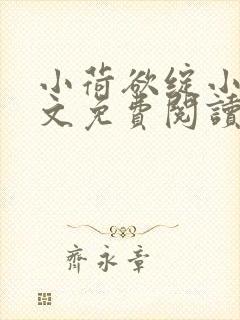 小荷欲綻小
文免費閱讀
齊永章